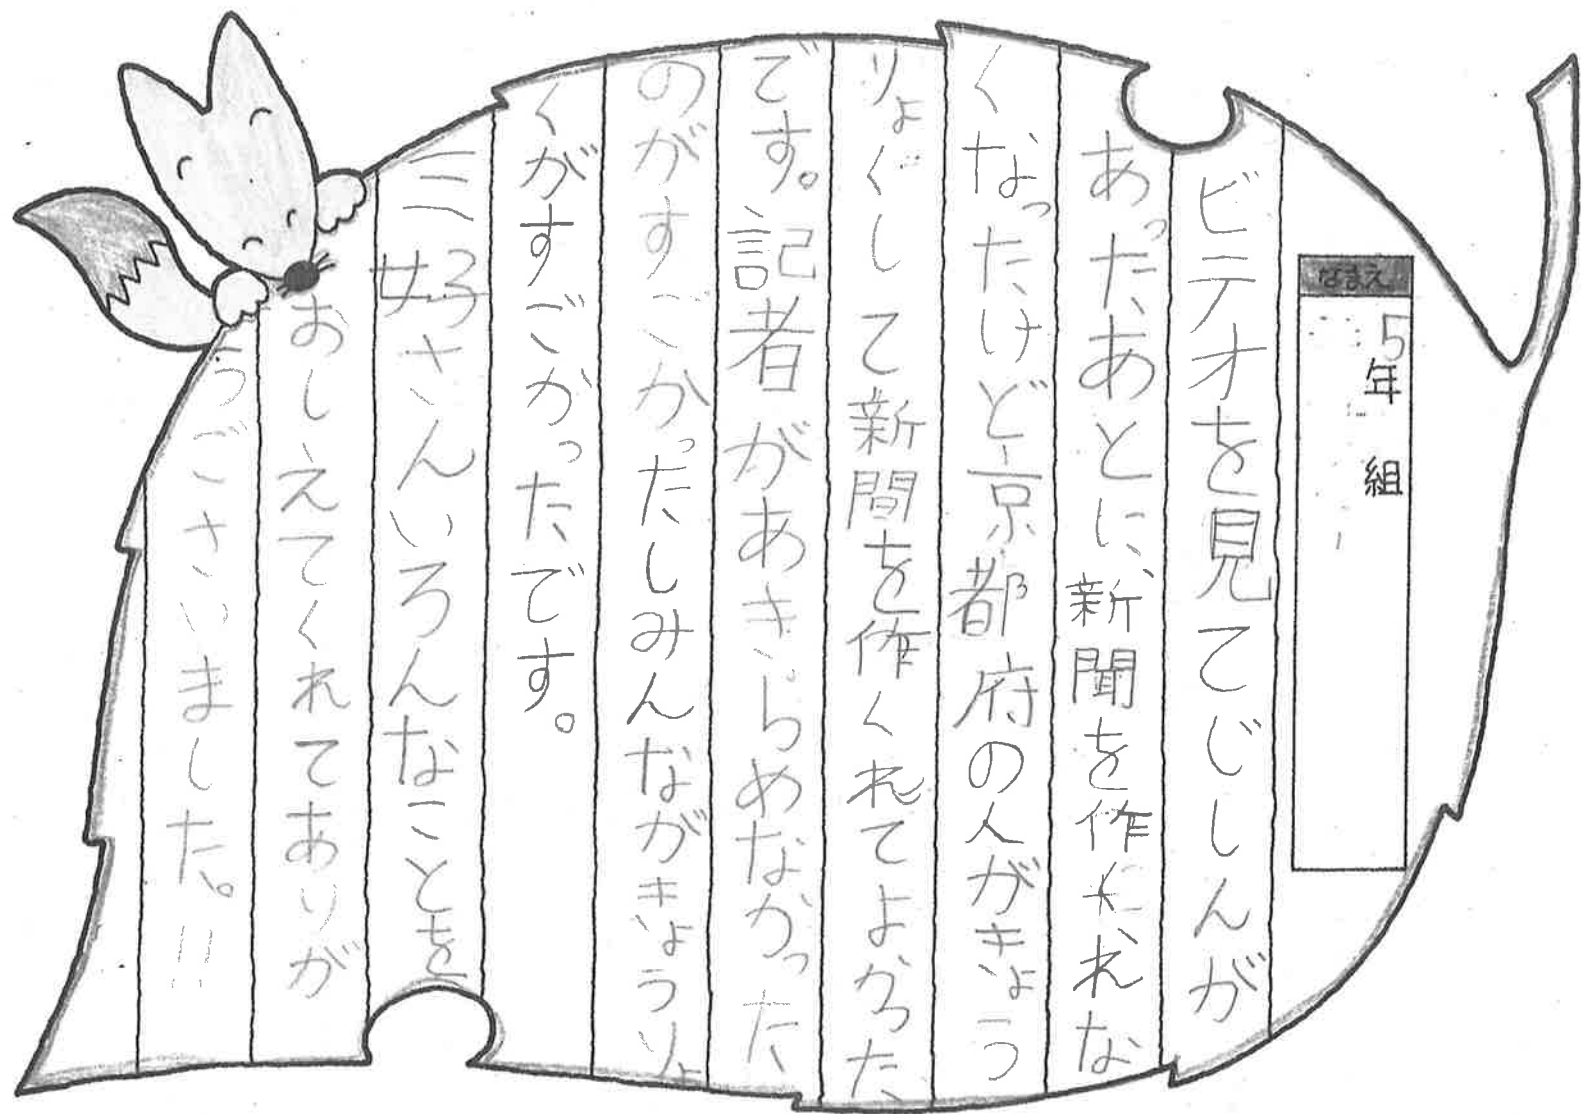 なまえ
5年 組
ビデオを見てじしんが
あったあとに、新聞を作れな
くなったけど京都府の人がきょう
りょくして新間を作くれてよかった
です。記者があきらめなかった
のがすごかったしみんながきょうりょ
くがすごかったです。
三好さんいろんなことを
おしえてくれてありが
うございました。!!